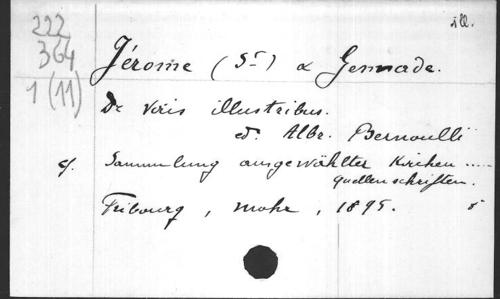 ill.
222
364
1 (11)
Jérome (St) & Gennade.
De Viris illustribus.
ed. Albr. Bernoulli
cf. Sammlung ausgewählter Kirchen .....
quellenschriften.
Fribourg, Mohr, 1895. 8